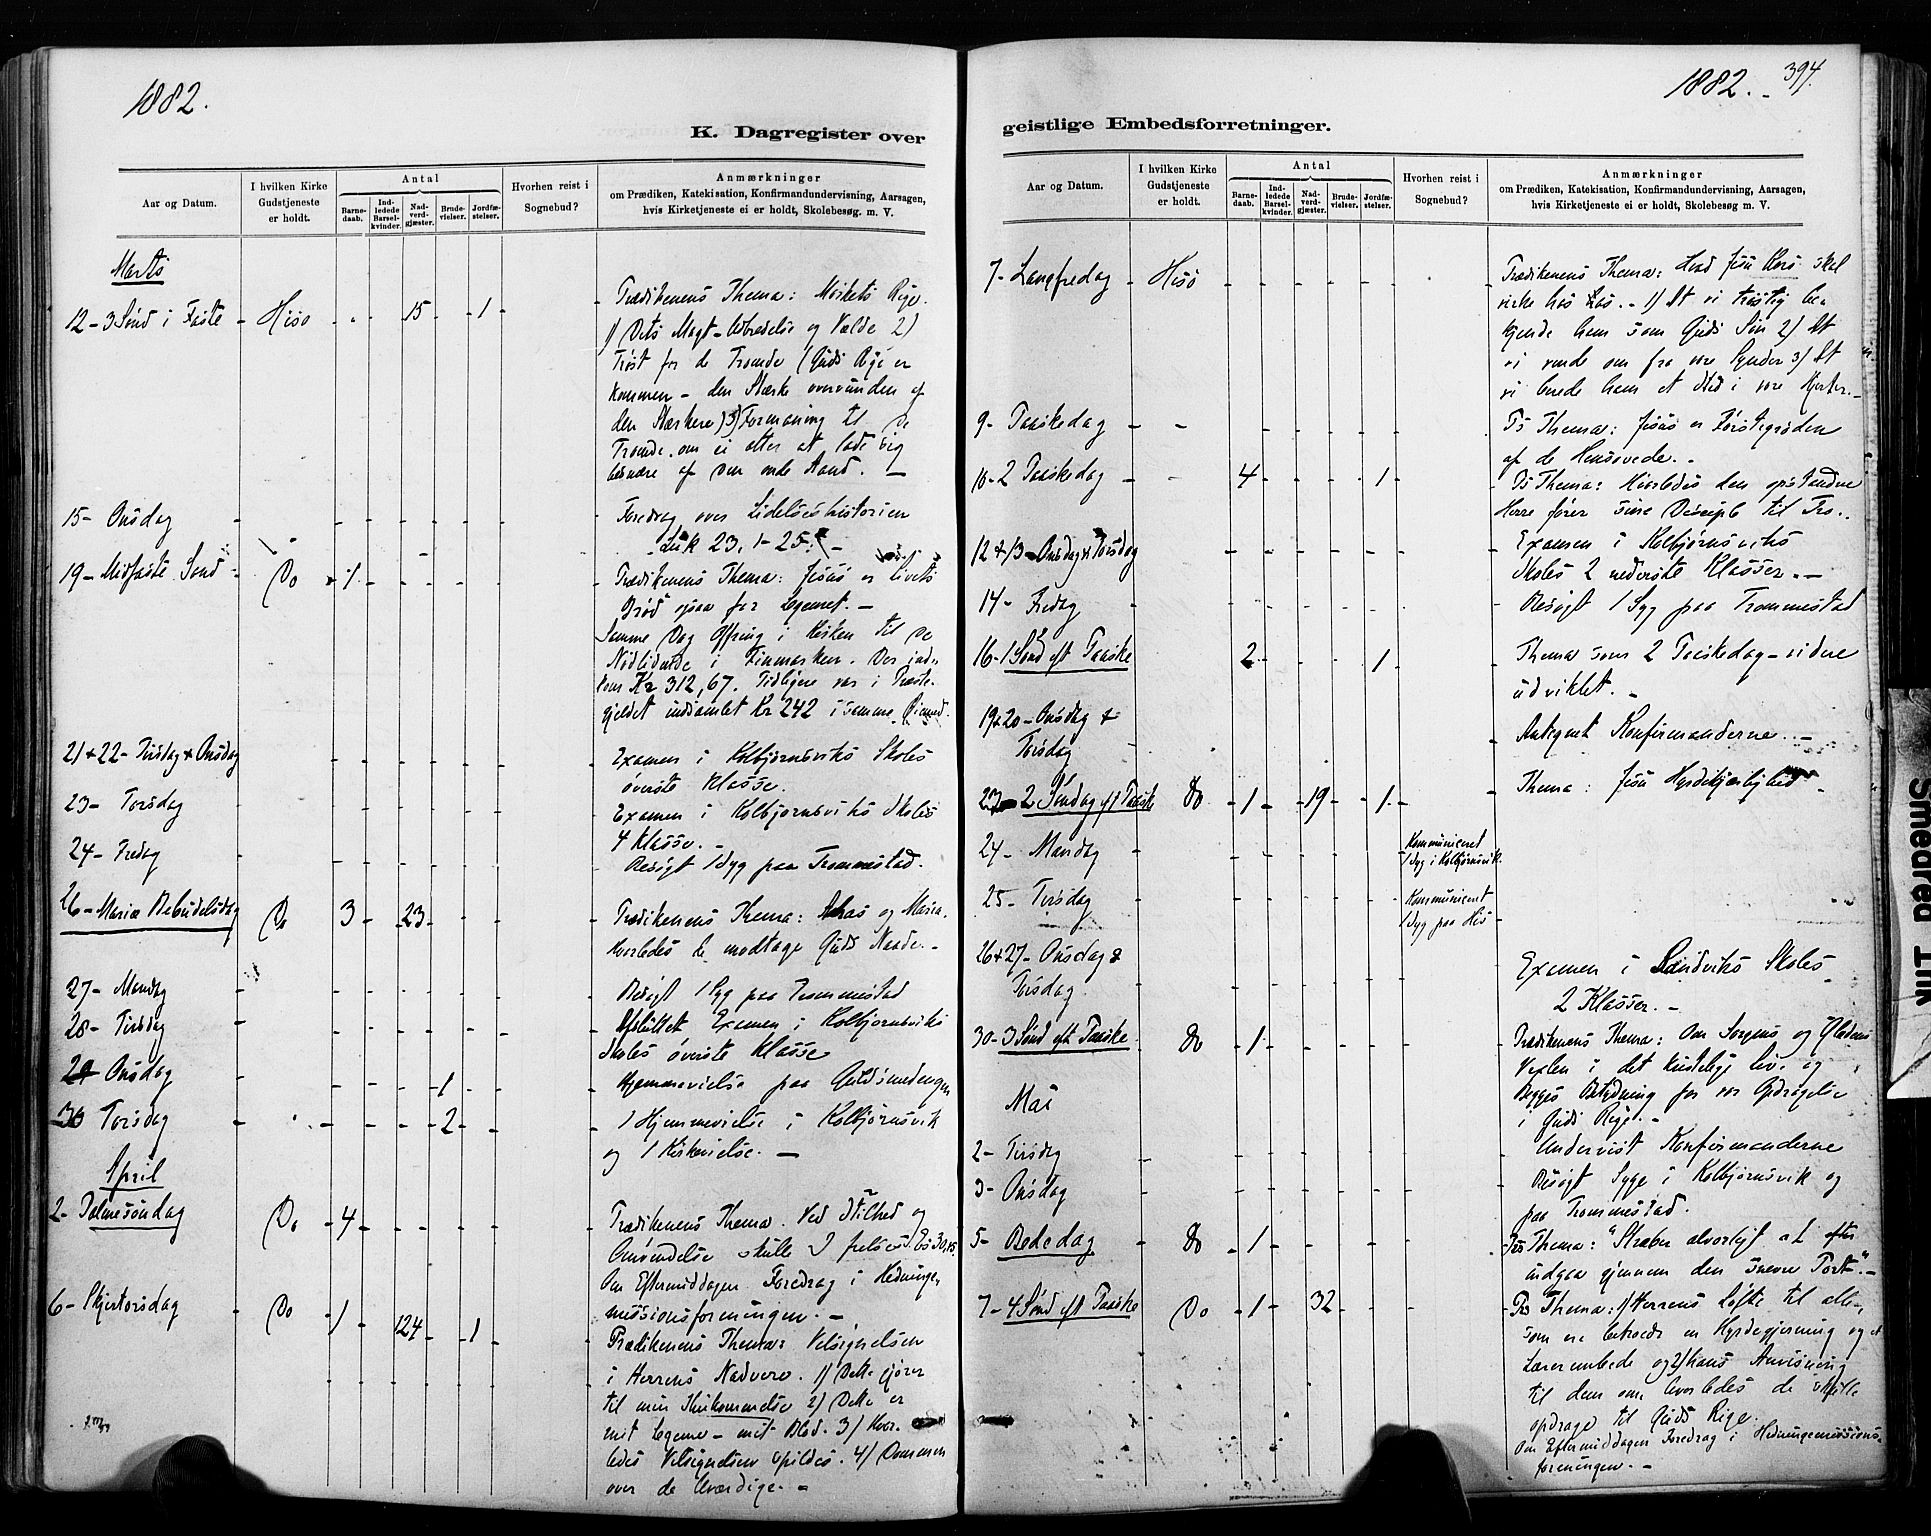 1882.
K. Dagregister over
Aar og Datum.
I hvilken Kirke
Gudstjeneste
er holdt.
Antal
Barne-
daab.
Ind-
ledede
Barsel-
kvinder.
Nad-
verd-
gjæster.
Brude-
vielser.
Jordfæ-
stelser.
Hvorhen reist i
Sognebud?
Anmærkninger
om Prædiken, Katekisation, Konfirmandundervisning, Aarsagen,
hvis Kirketjeneste ei er holdt, Skolebesøg m. V.
Marts
12 - 3 Sønd i Faste - Hisø - 15 - 1 -
Prædikenens Thema: Mørkets Rige.
1) Dets Magt - Udbredelse og Vælde 2)
Trøst for de Troende (Guds Rige er
kommen - den Stærke overvunden af
den Stærkere) 3) Formaning til De
Troende om ei atter at lade sig
besnære af den onde Aand. -
15 - Onsdag
Foredrag over Lidelseshistorien
Luk 23, 1-25. -
19 - Midfaste Sønd - Do - 1 -
Prædikenens Thema: Jesus er Livets
Brød ogsaa for Legemet. -
Samme Dag Offring i Kirken til De
Nødlidende i Finmarken. Der ind-
kom Kr 312,67. Tidligere var i Præste-
gjeldet indsamlet Kr 242 i samme Øiemed.
21 + 22 - Tirsdag + Onsdag
Examen i Kolbjørnsviks Skoles
øverste Klasse.
23 - Torsdag
Examen i Kolbjørnsviks Skoles
4 Klasse. -
24 - Fredag
Besøgt 1 Syg paa Trommestad.
26 - Mariæ Bebudelsdag - Do - 3 - 23 -
Prædikenens Thema: og Maria.
Hvorledes de modtage Guds Naade. -
27 - Mandag
Besøgt 1 Syg paa Trommestad
28 - Tirsdag
Afsluttet Examen i Kolbjørnsviks
Skoles øverste Klasse
29 Onsdag - 1 -
Hjemmevielse paa Guldsmedengen
30 Torsdag - 2 -
1 Hjemmevielse i Kolbjørnsvik
og 1 Kirkevielse. -
April
2 - Palmesøndag - Do - 4 -
Prædikenens Thema. Ved Stilhed og
Omvendelse skulle I frelses. Es 30,15.
Om Eftermiddagen Foredrag i Hedninge-
missionsforeningen. -
6 - Skjertorsdag - Do - 1 - 124 - 1
Prædikenens Thema: Velsignelsen
i Herrens Nadvere. 1) Dette gjører
til min Ihukommelse 2) Dette er
mit Legeme - mit Blod. 3) Hvor-
ledes Velsignelsen spildes. 4) Dommen
over de Uværdige. -
1882. - 394.
geistlige Embedsforretninger.
Aar og Datum.
I hvilken Kirke
Gudstjeneste
er holdt.
Antal
Barne-
daab.
Ind-
ledede
Barsel-
kvinder.
Nad-
verd-
gjæster.
Brude-
vielser.
Jordfæ-
stelser.
Hvorhen reist i
Sognebud?
Anmærkninger
om Prædiken, Katekisation, Konfirmandundervisning, Aarsagen,
hvis Kirketjeneste ei er holdt, Skolebesøg m. V.
7 - Langfredag - Hisø
Prædikenens Thema: Hvad Jesu Kors skal
virke hos os. - 1) At vi trøstig be-
kjende ham som Guds Søn 2) At
vi vende om fra vore Synder 3) At
vi berede ham et Sted i vore Hjerter. -
9 - Paaskedag - -
Ps Thema: Jesus er Førstegrøden
af de Hensovede. -
10 - 2 Paaskedag - - 4 - 1
Ps Thema: Hvorledes den opstandne
Herre fører sine Disciple til Tro. -
12 + 13 - Onsdag + Torsdag
Examen i Kolbjørnsviks
Skoles 2 nederste Klasser. -
14 - Fredag
Besøgt 1 Syg paa Trommestad
16 - 1 Sønd eft Paaske 2 - 1
Thema som 2 Paaskedag - videre
udviklet. -
19 + 20 - Onsdag +
Torsdag
Antegnet Konfirmanderne. -
23 - 2 Søndag eft Paaske Do - 1 - 19 - 1 -
Thema: Jesu Hyrdekjærlighed -
24 - Mandag
Kommuniceret
1 Syg i Kolbjørnsvik.
25 - Tirsdag
Kommuniceret
1 Syg paa His
26 + 27 - Onsdag &
Torsdag
Examen i Sandviks Skoles
2 Klasser. -
30 - 3 Sønd eft Paaske - Do - 1
Prædikenens Thema: Om Sorgens og Glædens
Vexlen i det kristelige Liv, og
Begges Betydning for vor Opdragelse
i Guds Rige. -
Mai
2 - Tirsdag
Underviist Konfirmanderne
3 - Onsdag
Besøgt Syge i Kolbjørnsvik og
paa Trommestad.
5 - Bededag - Do - 1
Ps Thema: "Stræber alvorligt at
indgaa gjennem den snevre Port". -
7 - 4 Sønd eft Paaske Do - 1 - 32
Ps Thema: 1) Herrens Løfte til alle,
som ere betroede en Hyrdegjerning og et
Lærerembede og 2) hans Anvisning
til dem om hvorledes de skulle
opdrage til Guds Rige.
Om Eftermiddagen Foredrag i Hedningemissions-
foreningen. -
Smedred Tilk